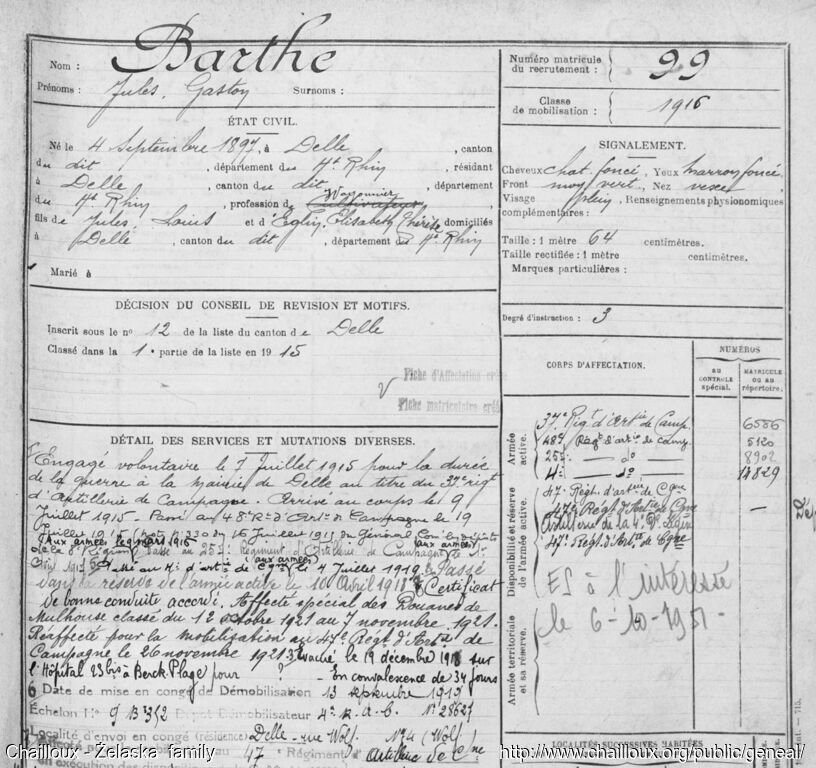 Nom : Barthe
Prénoms : Jules, Gaston Surnoms :
ÉTAT CIVIL.
Né le 4 Septembre 1897, à Delle, canton
du dit, département du Ht Rhin, résidant
à Delle, canton du dit, département
du Ht Rhin, profession de Wagonnier
Cultivateur,
fils de Jules, Louis et d'Eglin, Elisabeth Thérèse domiciliés
à Delle, canton du dit, département du Ht Rhin
Marié à
DÉCISION DU CONSEIL DE REVISION ET MOTIFS.
Inscrit sous le no 12 de la liste du canton de Delle
Classé dans la 1e partie de la liste en 1915
Fiche d'Affectation
Fiche matriculaire
DÉTAIL DES SERVICES ET MUTATIONS DIVERSES.
Engagé volontaire le 7 Juillet 1915 pour la durée
de la guerre à la mairie de Delle au titre du 37e régt
d'Artillerie de Campagne. Arrivé au corps le 9
Juillet 1915 - Passé au 48e Rt d'Art de Campagne le 19
Juillet 1915 du 16 Juillet 1915 du Général
Aux armées le mars 1916
de la 8e Région) Passé au 25 Régiment d'Artillerie de Campagne le
(aux armées)
Passé au 4e d'artie de Cgne le 4 Juillet 1919 Passé
dans la réserve de l'armée active le 10 Avril 1918 Certificat
de bonne conduite accordé. Affecté spécial des Douanes de
Mulhouse classé du 1er octobre 1921 au 7 novembre 1921.
Réaffecté pour la mobilisation au 47e Régt d'Artie de
Campagne le 26 novembre 1921. Evacué le 19 décembre 1918 sur
l'Hôpital 23 bis à Berck Plage pour ? - En convalescence de 34 jours
Date de mise en congé de Démobilisation 13 septembre 1919
Échelon No 9 Dépot Démobilisateur 4e R.A.C. No 28627
Localité d'envoi en congé (résidence) Delle - rue Wolf. No 4 (Wolf)
au 47e Régiment d'Artillerie de Cgne
Numéro matricule
du recrutement : 99
Classe
de mobilisation : 1916
SIGNALEMENT.
Cheveux chat. foncé, Yeux marron foncé
Front moy vert., Nez vexe
Visage plein, Renseignements physionomiques
complémentaires :
Taille : 1 mètre 64 centimètres.
Taille rectifiée : 1 mètre centimètres.
Marques particulières :
Degré d'instruction : 3
CORPS D'AFFECTATION.
NUMÉROS
AU CONTROLE spécial.
MATRICULE OU AU répertoire.
Armée active.
37e Rigt d'Artie de Camp. 6586
48e Régt d'artie de camp. 5120
25 — do — 8902
4e — do — 14829
Disponibilité et réserve de l'armée active.
47e Régt. d'artie de Cgne
47e Régt d'Artie de Cgne —
Artillerie de la 4e
47e Régt d'Artie de Cgne
Armée territoriale et sa réserve.
ES à l'intéressé
le 6-10-1951-
LOCALITÉS SUCCESSIVES HABITÉES
Chailloux - Zelaska family
http://www.chailloux.org/public/geneal/